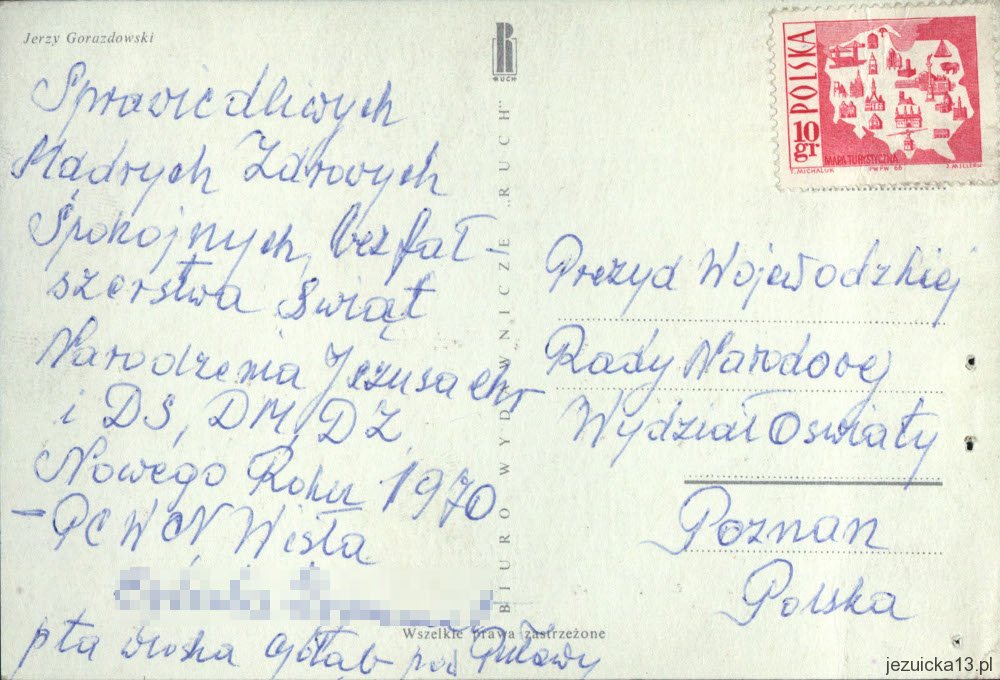 Jerzy Gorazdowski
RUCH
POLSKA
10 gr
MAPA TURYSTYCZNA
T. MICHALUK PWPW 66 J. MILLER
Sprawiedliwych
Mądrych Zdrowych
Spokojnych, bez fał-
szerstwa Swiąt
Narodzenia Jezusa chr
i DS, DM, DZ
Nowego Roku 1970
- PCWCN, Wisła
pta Gołąb pod Puławy
BIURO WYDAWNICZE „RUCH”
Prezyd Wojewodzkiej
Rady Narodowej
Wydział Oswiaty
Poznan
Polska
Wszelkie prawa zastrzeżone
jezuicka13.pl